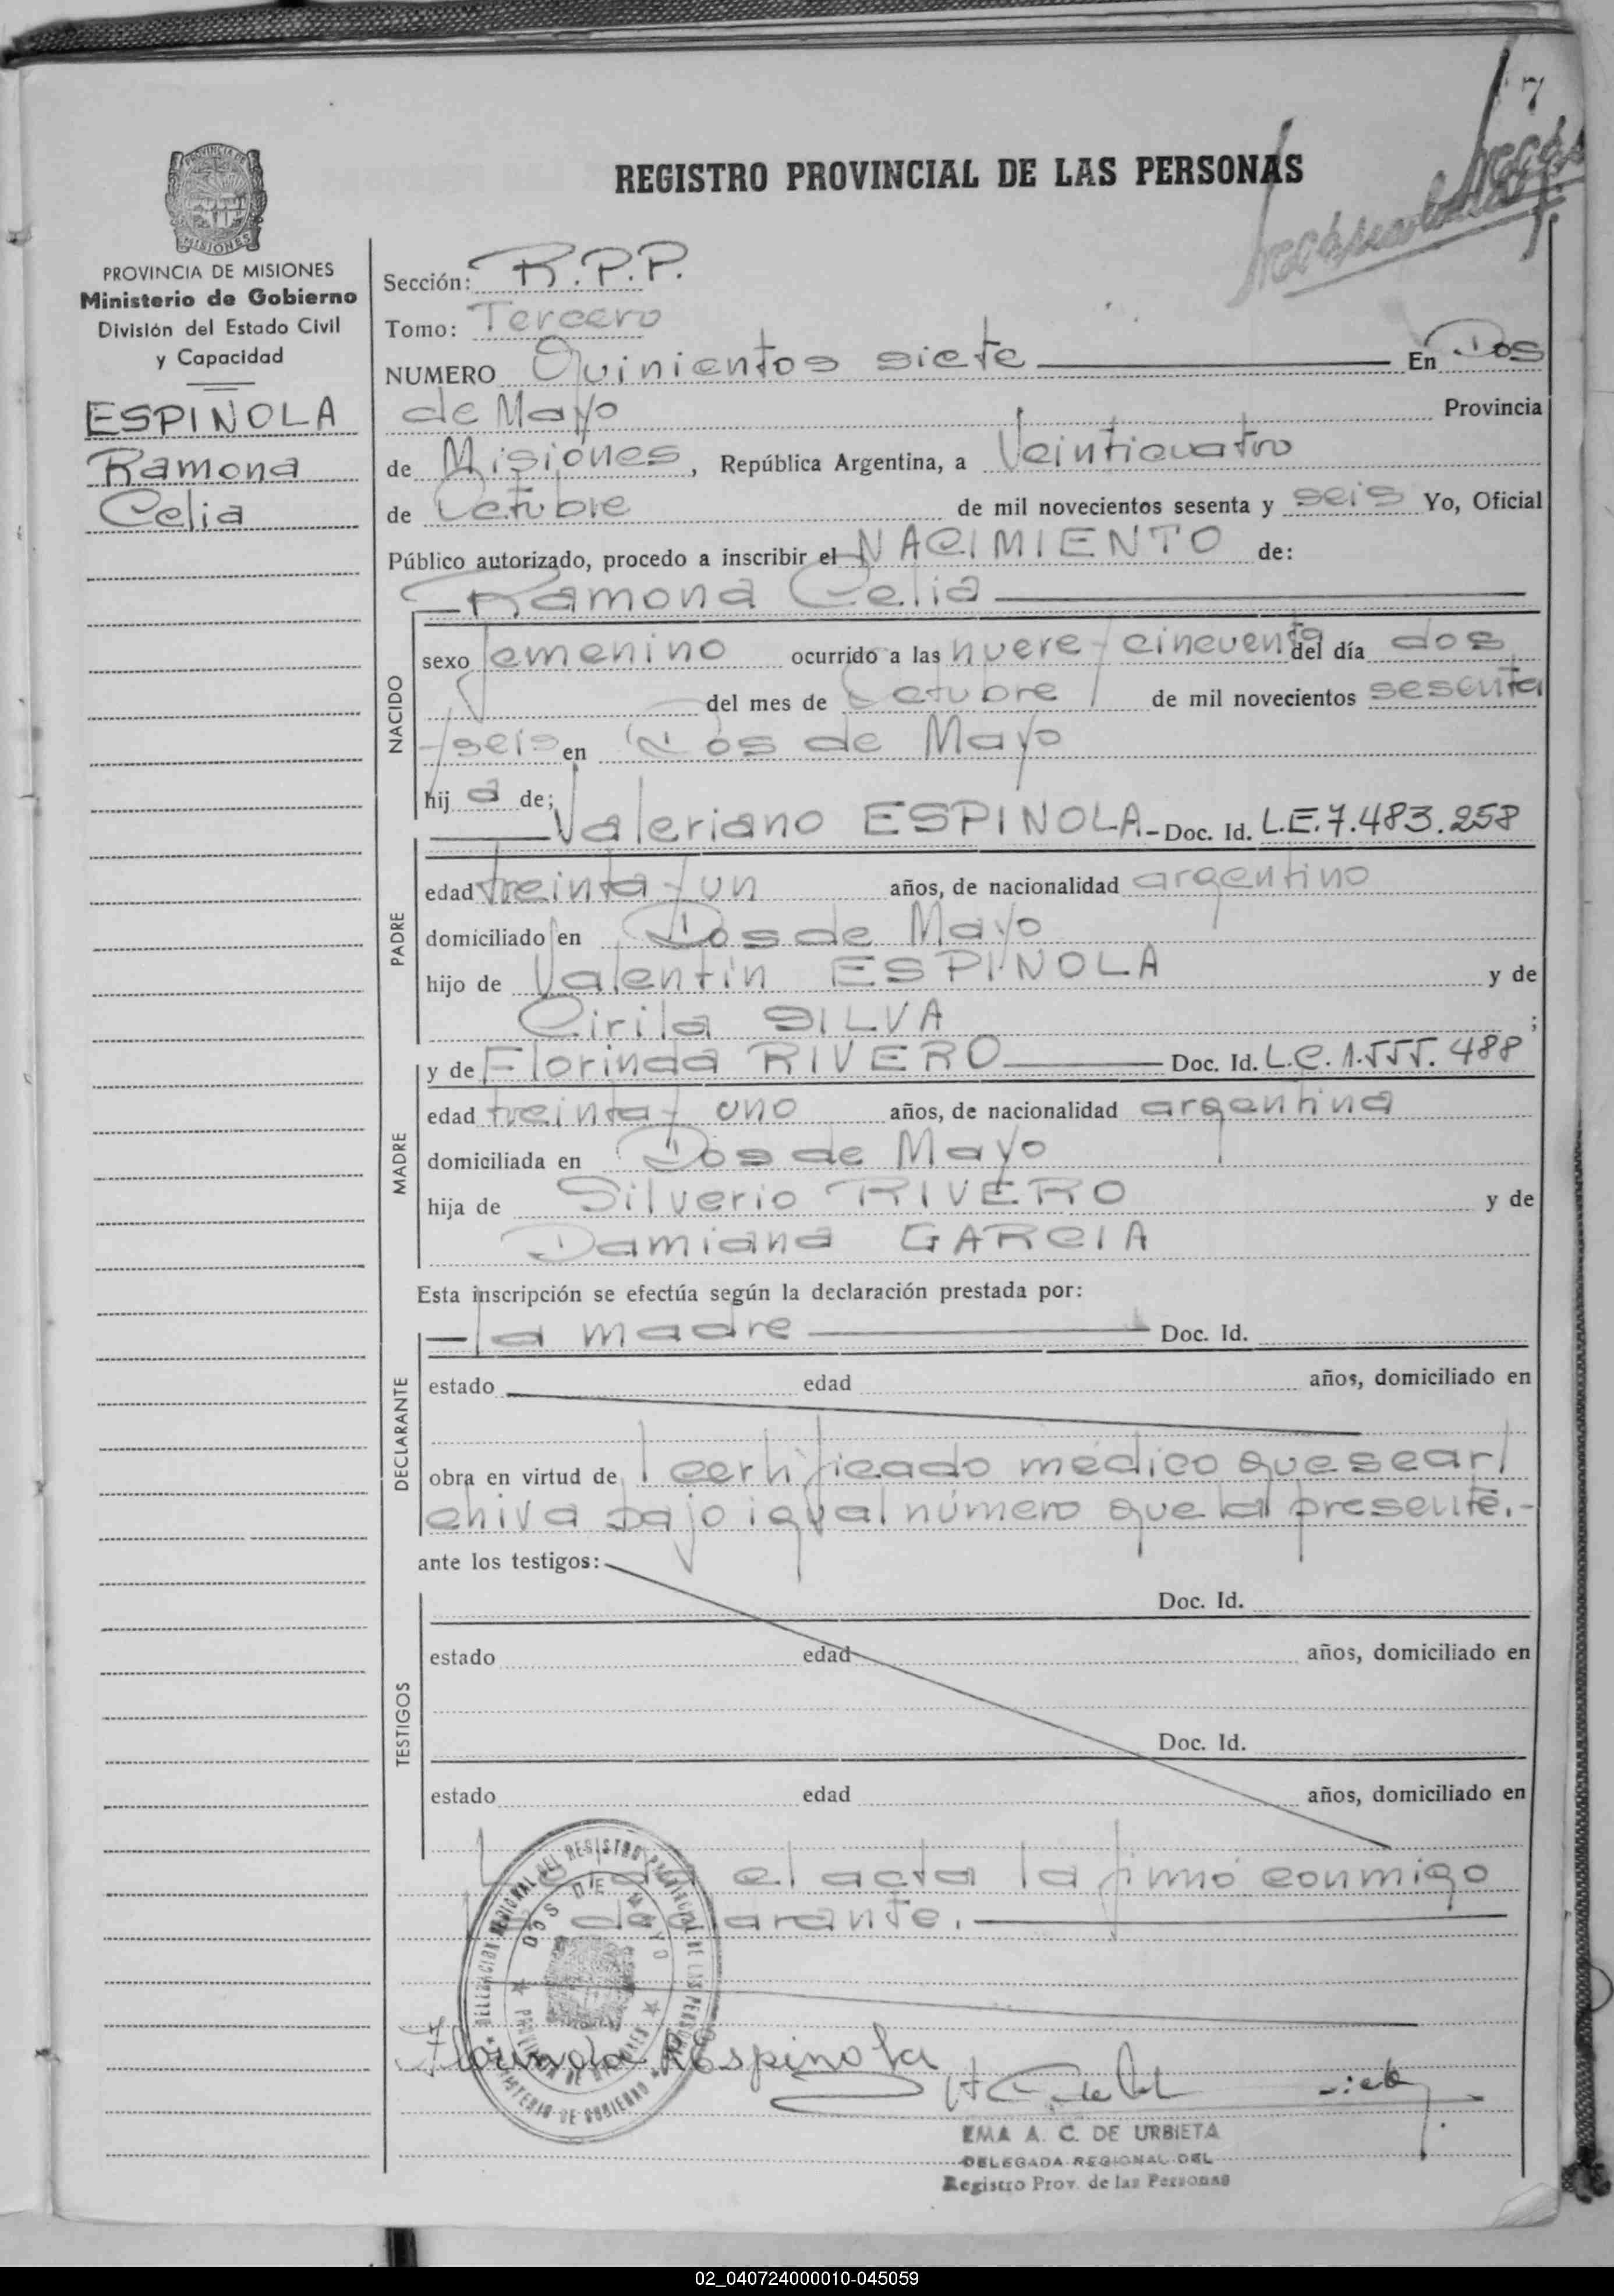 7
REGISTRO PROVINCIAL DE LAS PERSONAS
PROVINCIA DE MISIONES
Ministerio de Gobierno
División del Estado Civil
y Capacidad
ESPINOLA
Ramona
Celia
Sección: R.P.P.
Tomo: Tercero
NUMERO Quinientos siete En Dos
de Mayo Provincia
de Misiones, República Argentina, a Veinticuatro
de Octubre de mil novecientos sesenta y seis Yo, Oficial
Público autorizado, procedo a inscribir el NACIMIENTO de:
Ramona Celia
NACIDO
sexo femenino ocurrido a las nueve y cincuenta del día dos
del mes de Octubre de mil novecientos sesenta
y seis en Dos de Mayo
hij a de;
Valeriano ESPINOLA.- Doc. Id. L.E.7.483.258
PADRE
edad treinta y un años, de nacionalidad argentino
domiciliado en Dos de Mayo
hijo de Valentín ESPINOLA y de
Cirila SILVA ;
y de Florinda RIVERO Doc. Id. L.C. 1.555.488
MADRE
edad treinta y uno años, de nacionalidad argentina
domiciliada en Dos de Mayo
hija de Silverio RIVERO y de
Damiana GARCIA
Esta inscripción se efectúa según la declaración prestada por:
la madre Doc. Id.
DECLARANTE
estado edad años, domiciliado en
obra en virtud de l certificado médico que se ar/
chiva bajo igual número que la presente.-
ante los testigos:
TESTIGOS
Doc. Id.
estado edad años, domiciliado en
Doc. Id.
estado edad años, domiciliado en
el acta la firmó conmigo
la declarante.
DELEGACION REGIONAL DEL REGISTRO PROVINCIAL DE LAS PERSONAS
DOS DE MAYO
PROVINCIA DE MISIONES
MINISTERIO DE GOBIERNO
Florinda R Espinola
EMA A. C. DE URBIETA
DELEGADA REGIONAL DEL
Registro Prov. de las Personas
02_040724000010-045059